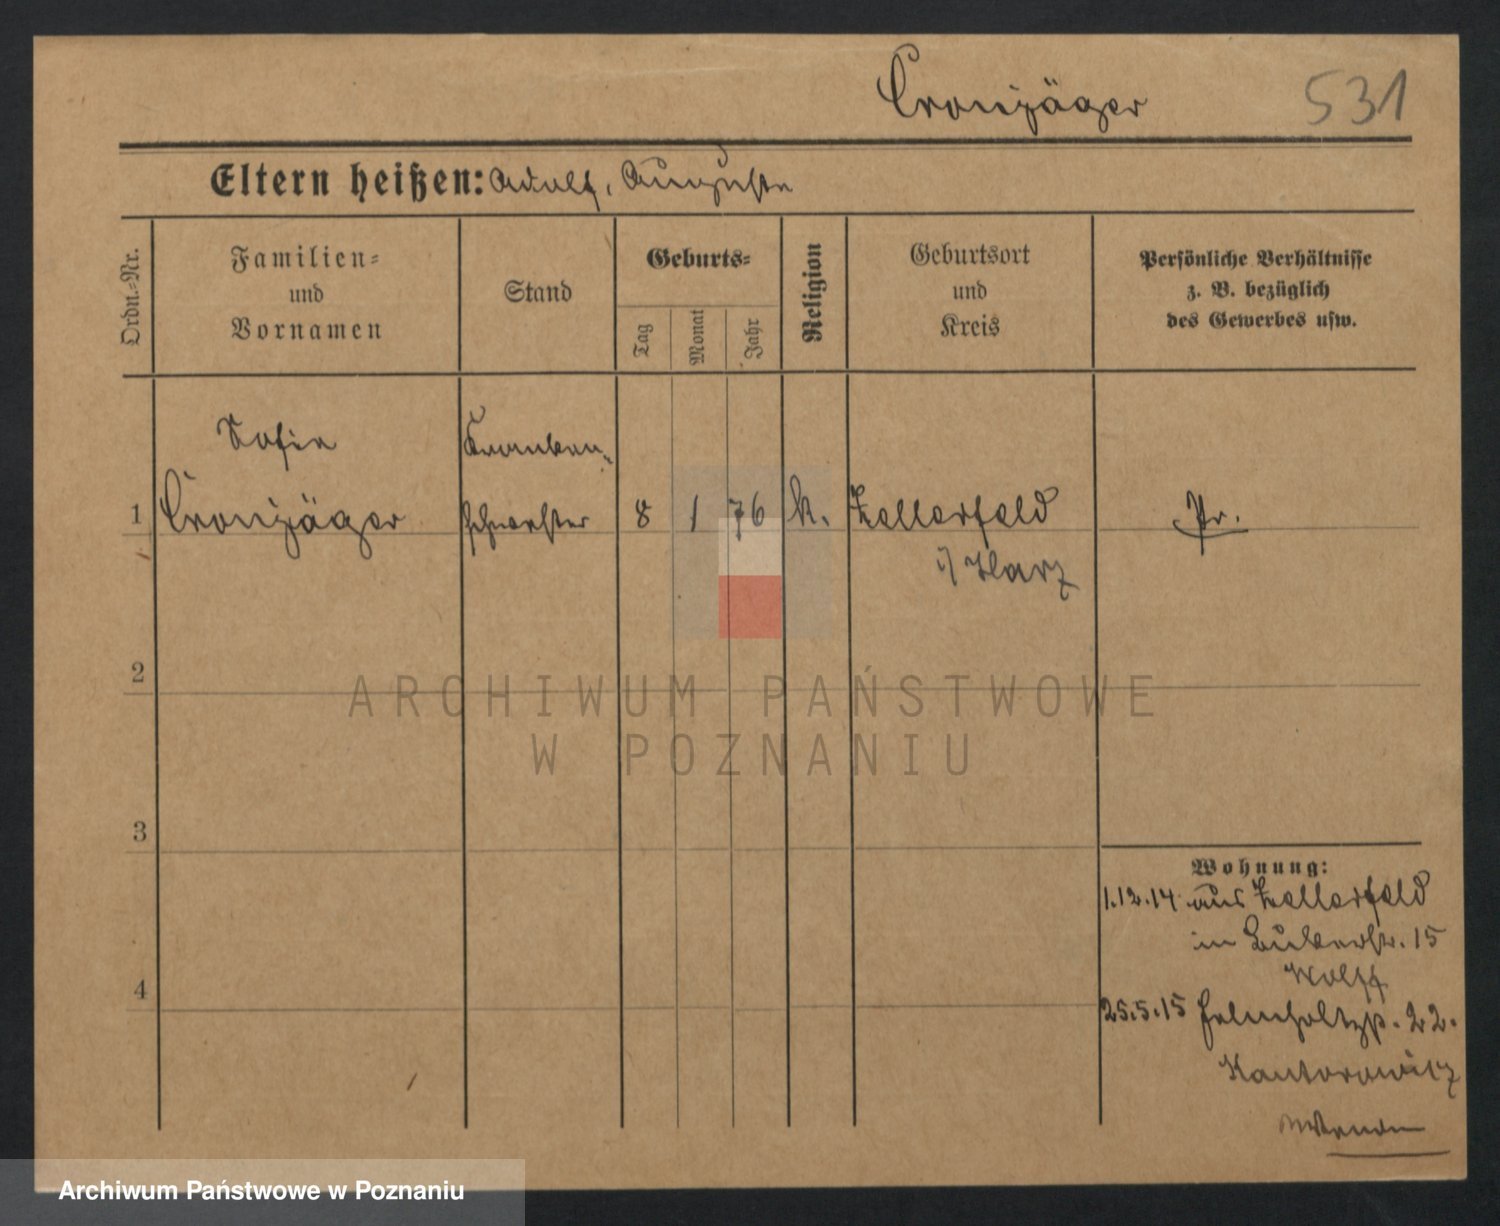 Cronjäger 531
Eltern heißen: Adolf, Auguste
Ordn.-Nr.
Familien-
und
Vornamen
Stand
Geburts-
Tag
Monat
Jahr
Religion
Geburtsort
und
Kreis
Persönliche Verhältnisse
z. B. bezüglich
des Gewerbes usw.
Sofie Kranken-
1 Cronjäger schwester 8 1 76 k. Zellerfeld Pr.
i/ Harz
2
3
4
Wohnung:
1.12.14 aus Zellerfeld
in Bukerstr. 15
Wolff
25.5.15 Helmholtzstr. 22.
Kantorowicz
ARCHIWUM PAŃSTWOWE
W POZNANIU
Archiwum Państwowe w Poznaniu